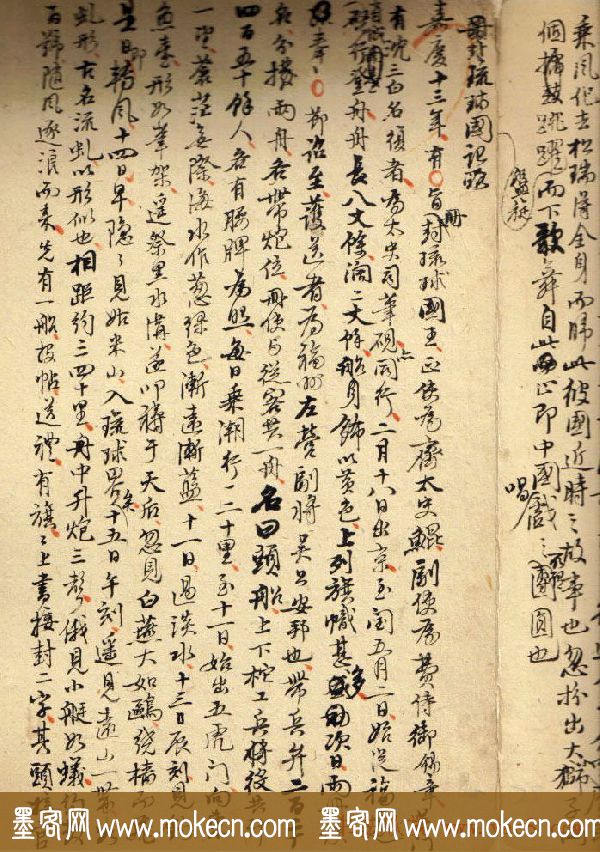 乘風作去松瑞得全身而歸此彼國近時之故事也忽扮出大獅子
個搖鼓跳躍而下歌舞自此而止即中國戲之團圓也
唱
冊封琉球國記略
嘉慶十三年有旨冊封琉球國王正使為齊太史鯤副使為費侍御錫章
有沈三白名復者為太史司筆硯同行二月十八日出京至閏五月二日始從福
登舟舟長八丈餘濶二丈餘船身飾以黃色上列旗幟甚多次日兩
詔至護送者為福州左營副將吳公安邦也帶兵弁二百
名分撥兩舟各帶炮位冊使與從客共一舟名曰頭船上下柁工兵將役共
四百五十餘人各有腰牌為照每日乘潮行一二十里至十一日始出五虎門向
一望蒼茫無際海水作葱綠色漸遠漸藍十一日過淡水十三日辰刻見
魚臺形如筆架遙祭黑水溝遂叩禱于天后忽見白燕大如鷗繞檣而飛
是日即轉風十四日早隱隱見姑米山入琉球界矣十五日午刻遙見遠山一帶
虬形古名流虬以形似也相距約三四十里舟中升炮三聲俄見小艇如蟻約
百號隨風逐浪而來先有一船投帖送禮有旗旗上書接封二字其頭接官
墨客网 www.mokecn.com 墨客网 www.mokecn.com